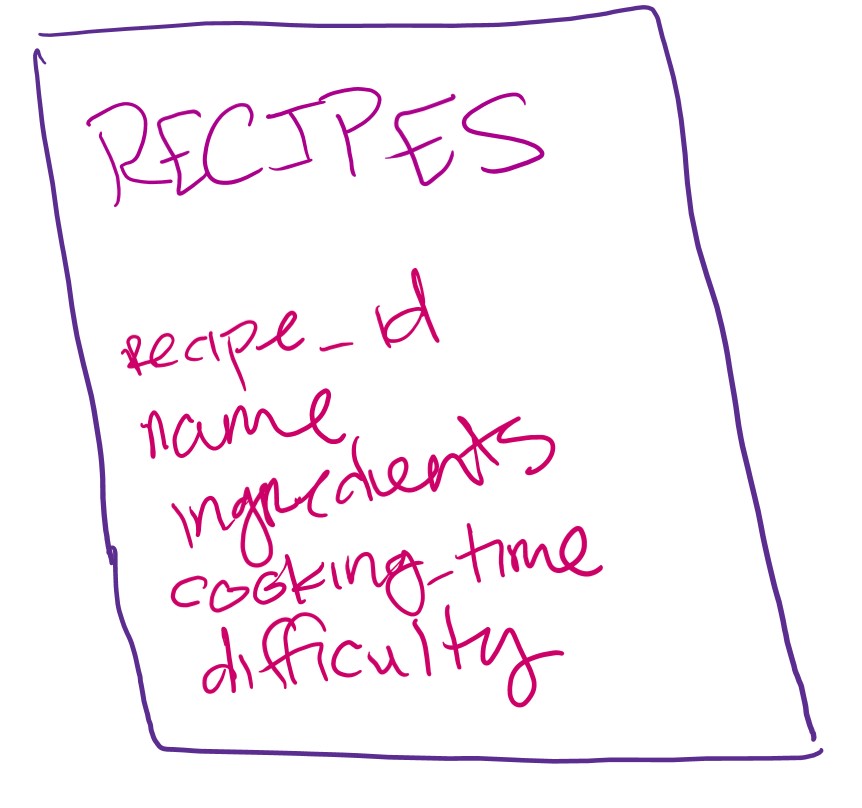 RECIPES
recipe_id
name
ingredients
cooking_time
difficulty